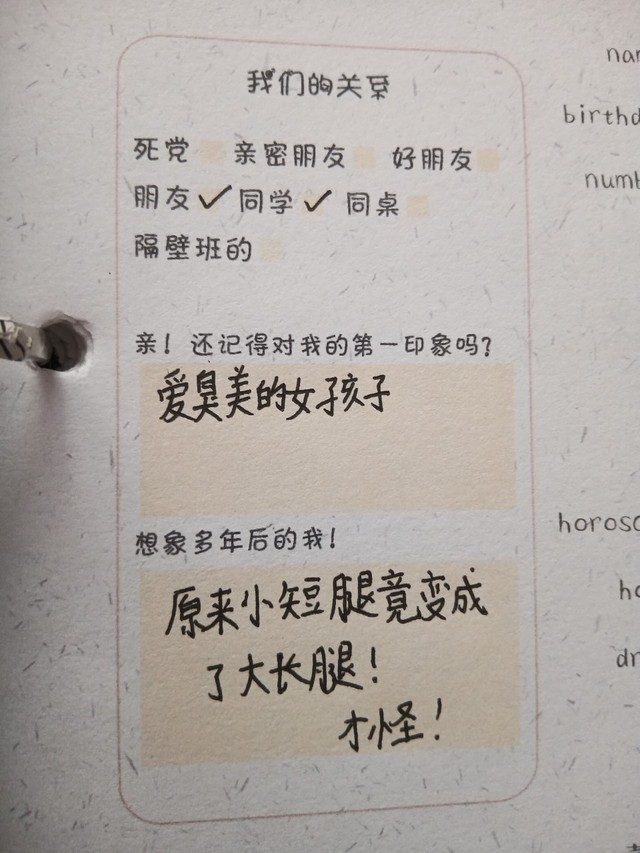 我们的关系
死党 亲密朋友 好朋友
朋友 ✓ 同学 ✓ 同桌
隔壁班的
亲！还记得对我的第一印象吗？
爱臭美的女孩子
想象多年后的我！
原来小短腿竟变成
了大长腿！
才怪！